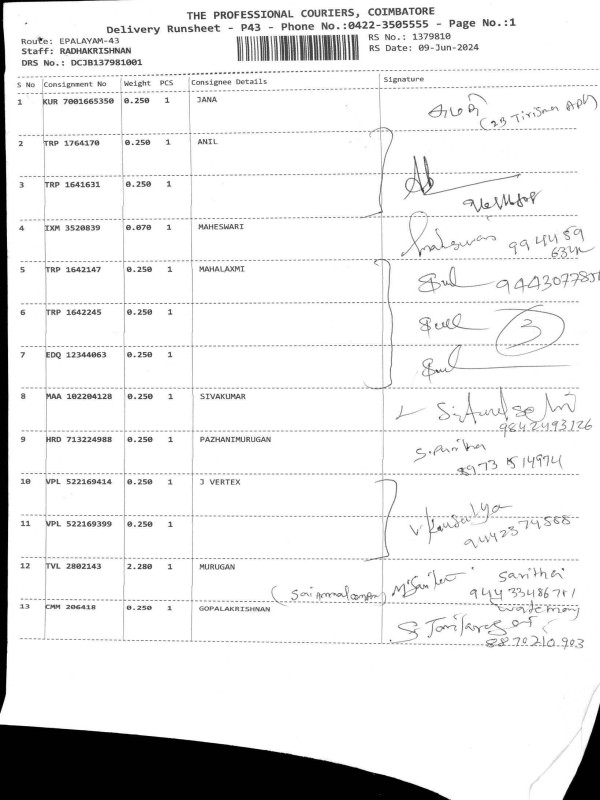 THE PROFESSIONAL COURIERS, COIMBATORE
Delivery Runsheet - P43 - Phone No.:0422-3505555 - Page No.:1
Route: EPALAYAM-43
Staff: RADHAKRISHNAN
DRS No.: DCJB137981001
RS No.: 1379810
RS Date: 09-Jun-2024
S No Consignment No Weight PCS Consignee Details Signature
1 KUR 7001665350 0.250 1 JANA
2 TRP 1764170 0.250 1 ANIL
3 TRP 1641631 0.250 1
4 IXM 3520839 0.070 1 MAHESWARI
5 TRP 1642147 0.250 1 MAHALAXMI
6 TRP 1642245 0.250 1 3
7 EDQ 12344063 0.250 1
8 MAA 102204128 0.250 1 SIVAKUMAR
9842493126
9 HRD 713224988 0.250 1 PAZHANIMURUGAN
8973 1514974
10 VPL 522169414 0.250 1 J VERTEX
11 VPL 522169399 0.250 1
9442374568
12 TVL 2802143 2.280 1 MURUGAN
13 CMM 206418 0.250 1 GOPALAKRISHNAN
8870210903